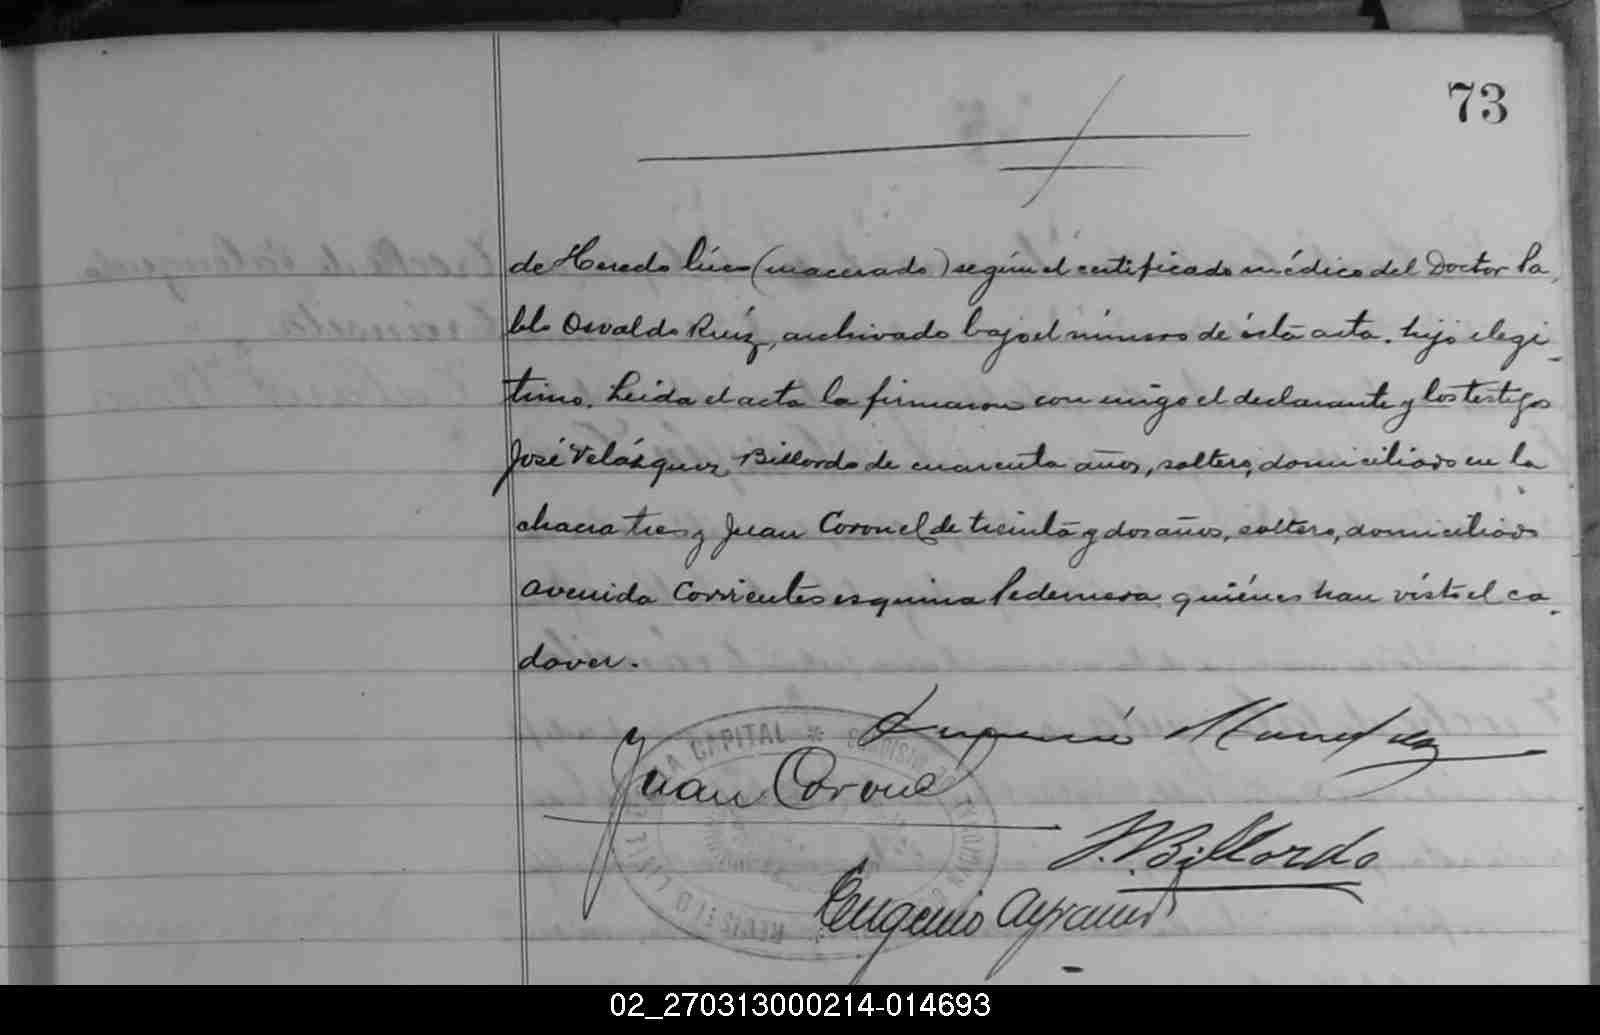 73
de Heredo lúes (macerado) según el certificado médico del Doctor Pa
blo Osvaldo Ruíz, archivado bajo el número de ésta acta. hijo ilegi_
timo. Leída el acta la firmaron con migo el declarante y los testigos
José Velázquez Billordo de cuarenta años, soltero, domiciliado en la
chacra tres y Juan Coronel de treinta y dos años, soltero, domiciliado
avenida Corrientes esquina Pedernera quiénes han vísto el ca_
daver.
Juan Coronel
J. V. Billordo
Eugenio
CAPITAL
02_270313000214-014693